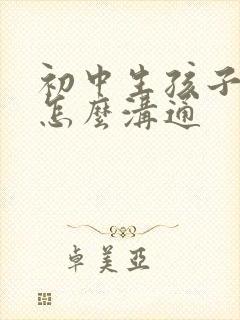 初中生孩子
怎麼溝通
卓美亞